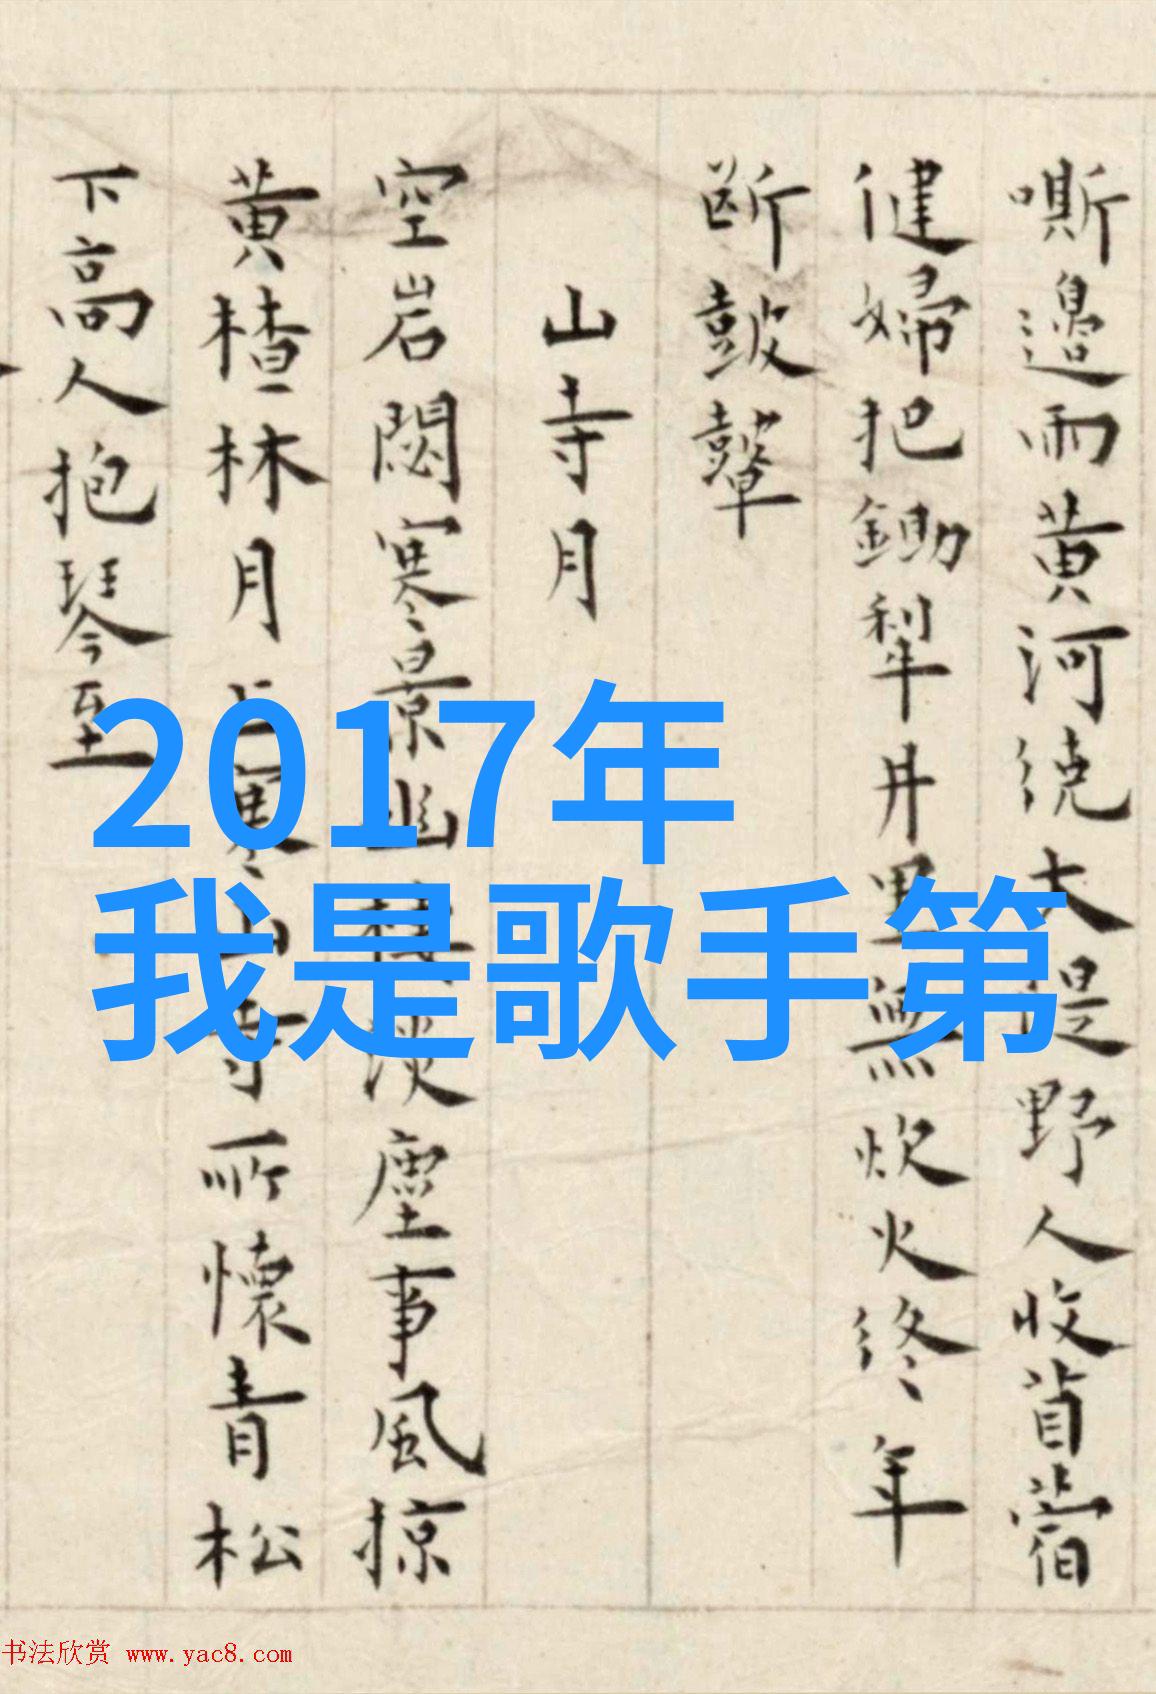 嘶邊雨黄河繞大堤野人收苜蓿
健婦把鋤犁井里無炊火終年
断鼓鼙
山寺月
空岩閟寒景幽淡塵事風掠
黄楂林月上寒山寺所懷青松
下高人抱琴至
2017年
我是歌手第
书法欣赏 www.yac8.com